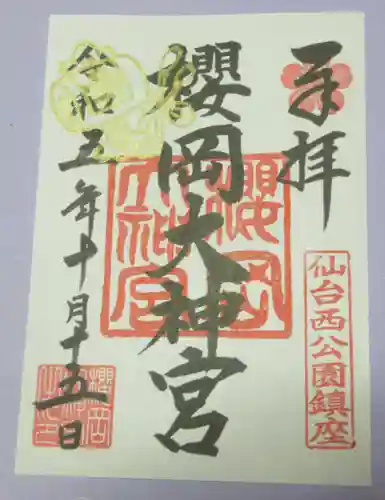 奉拝
仙台西公園鎮座
櫻岡大神宮
櫻岡大神宮
令和五年十月十五日